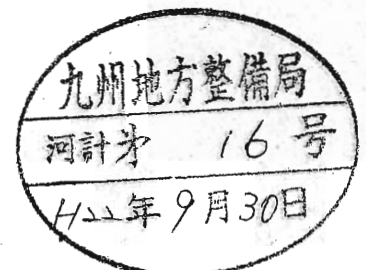 九州地方整備局
河計第 16 号
H22年9月30日